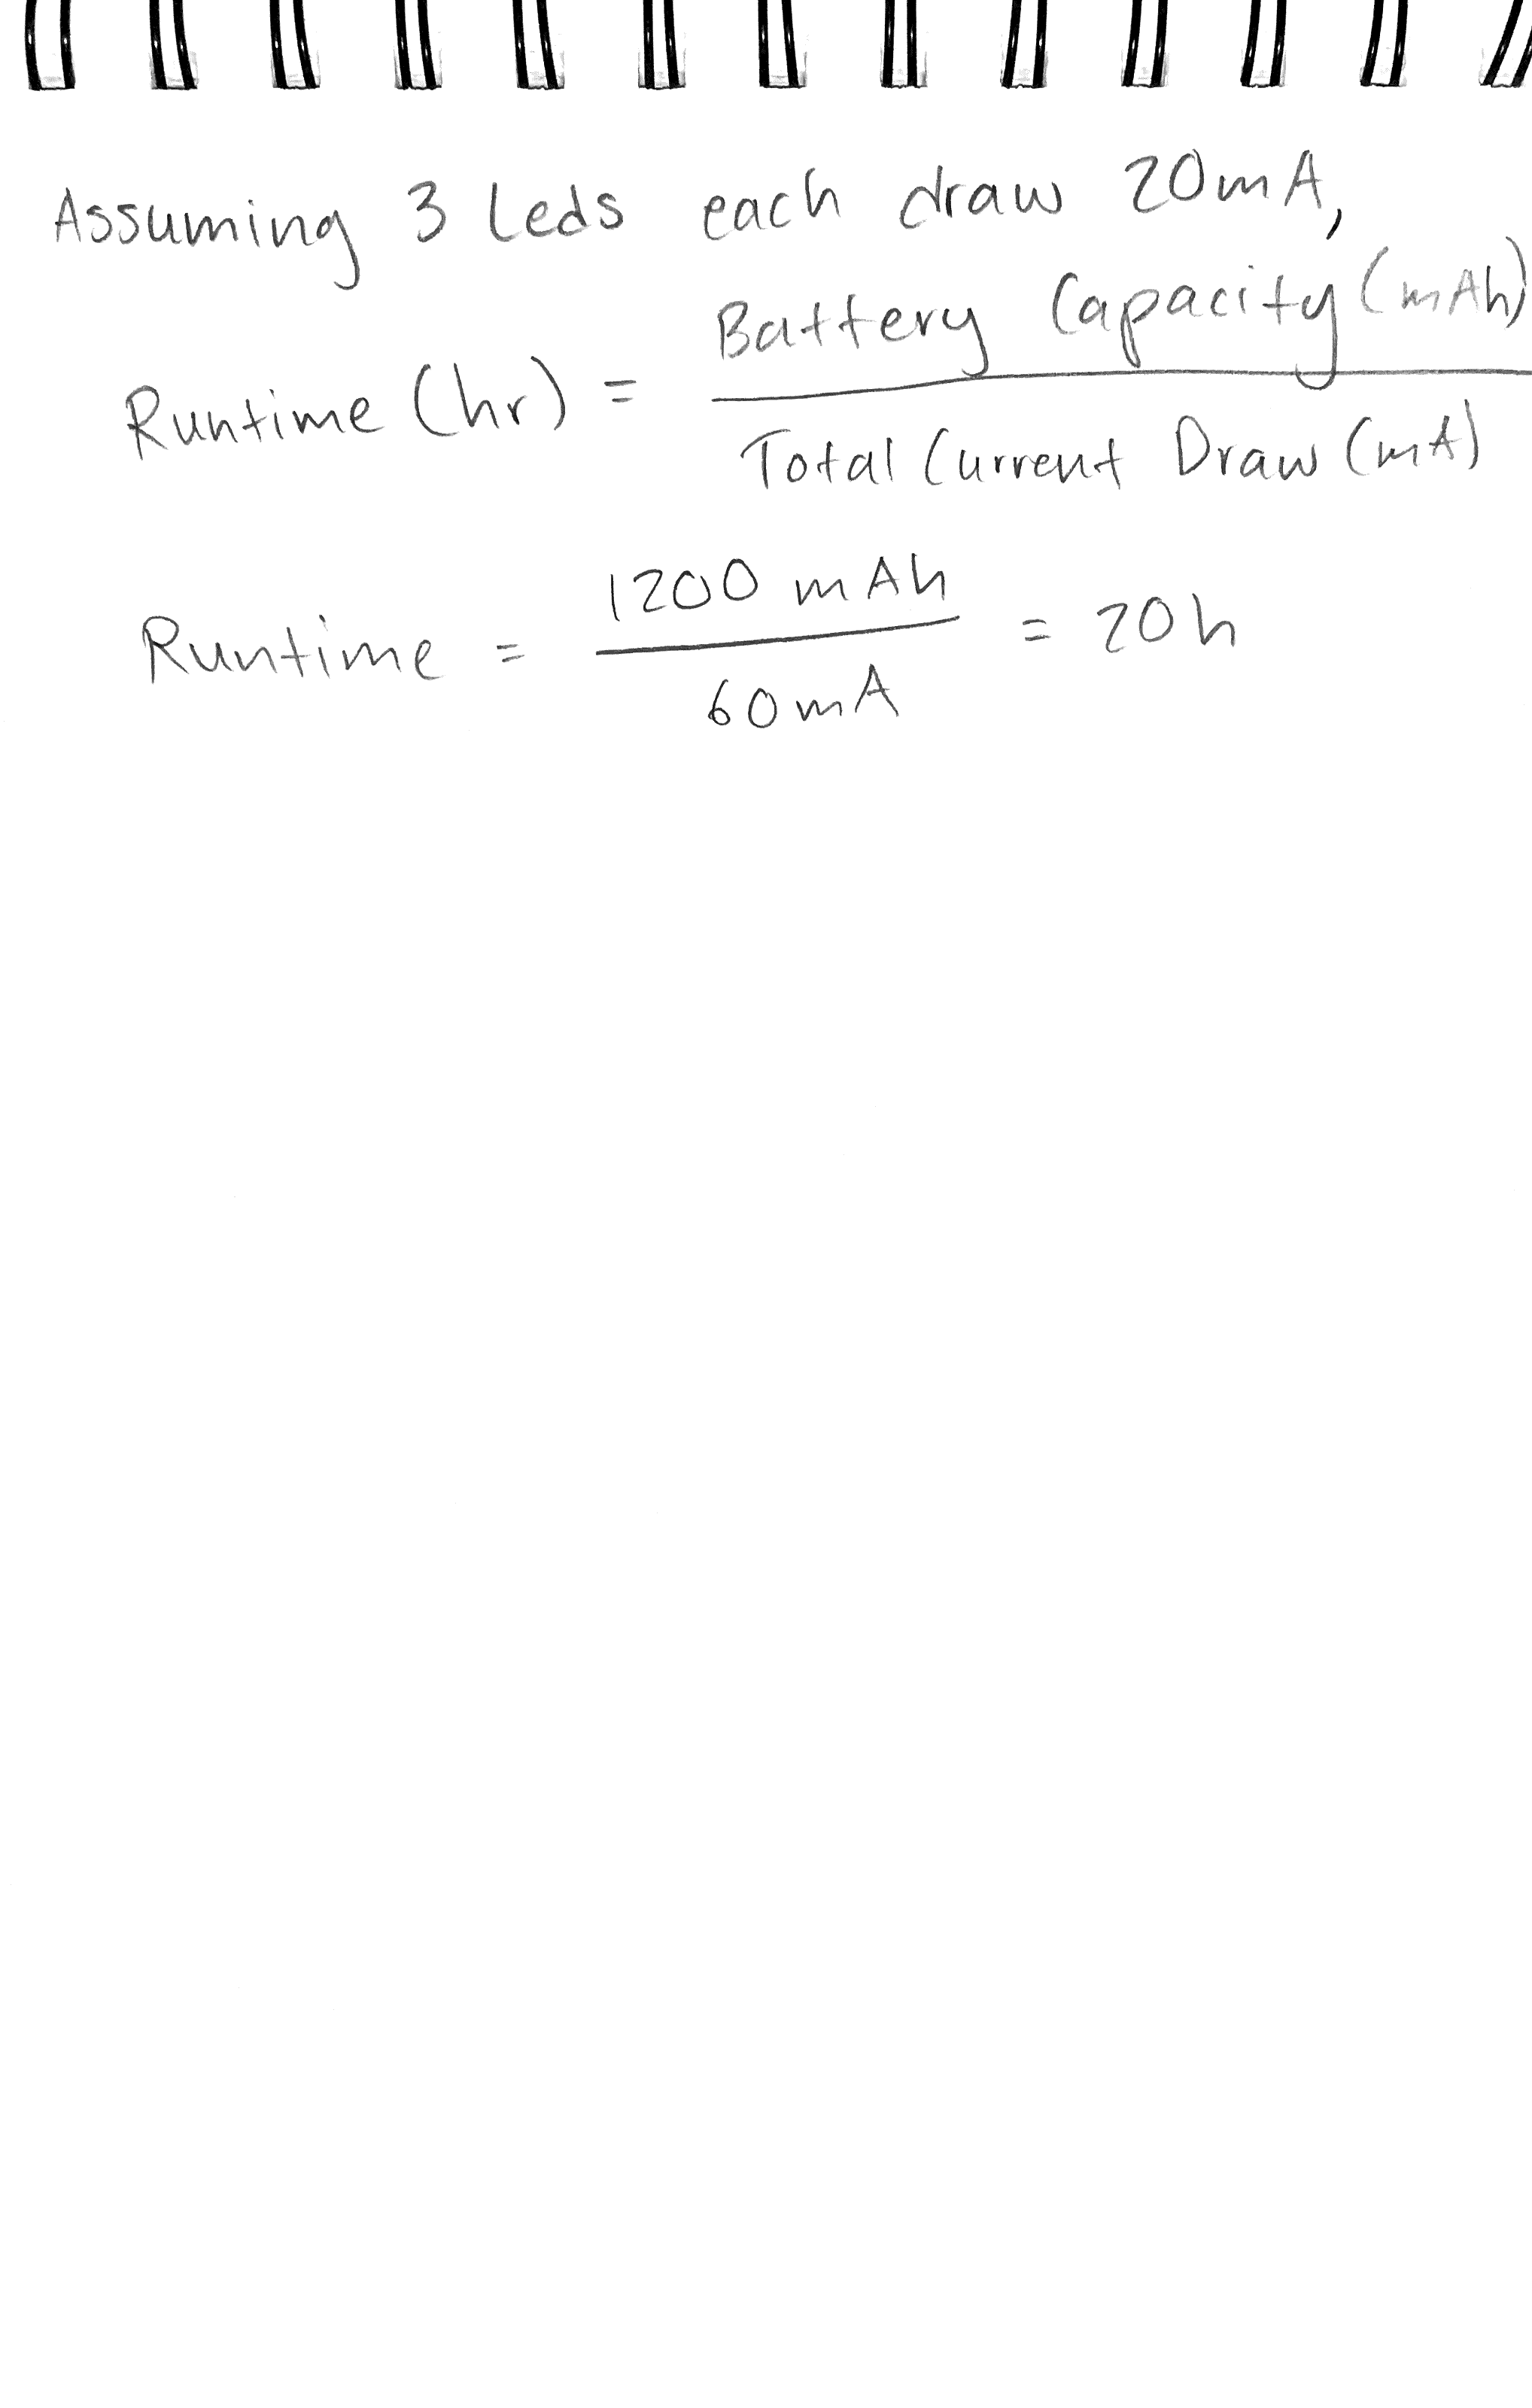 Assuming 3 Leds each draw 20mA,
Runtime (hr) = Battery Capacity (mAh)
Total Current Draw (mA)
Runtime = 1200 mAh = 20h
60mA